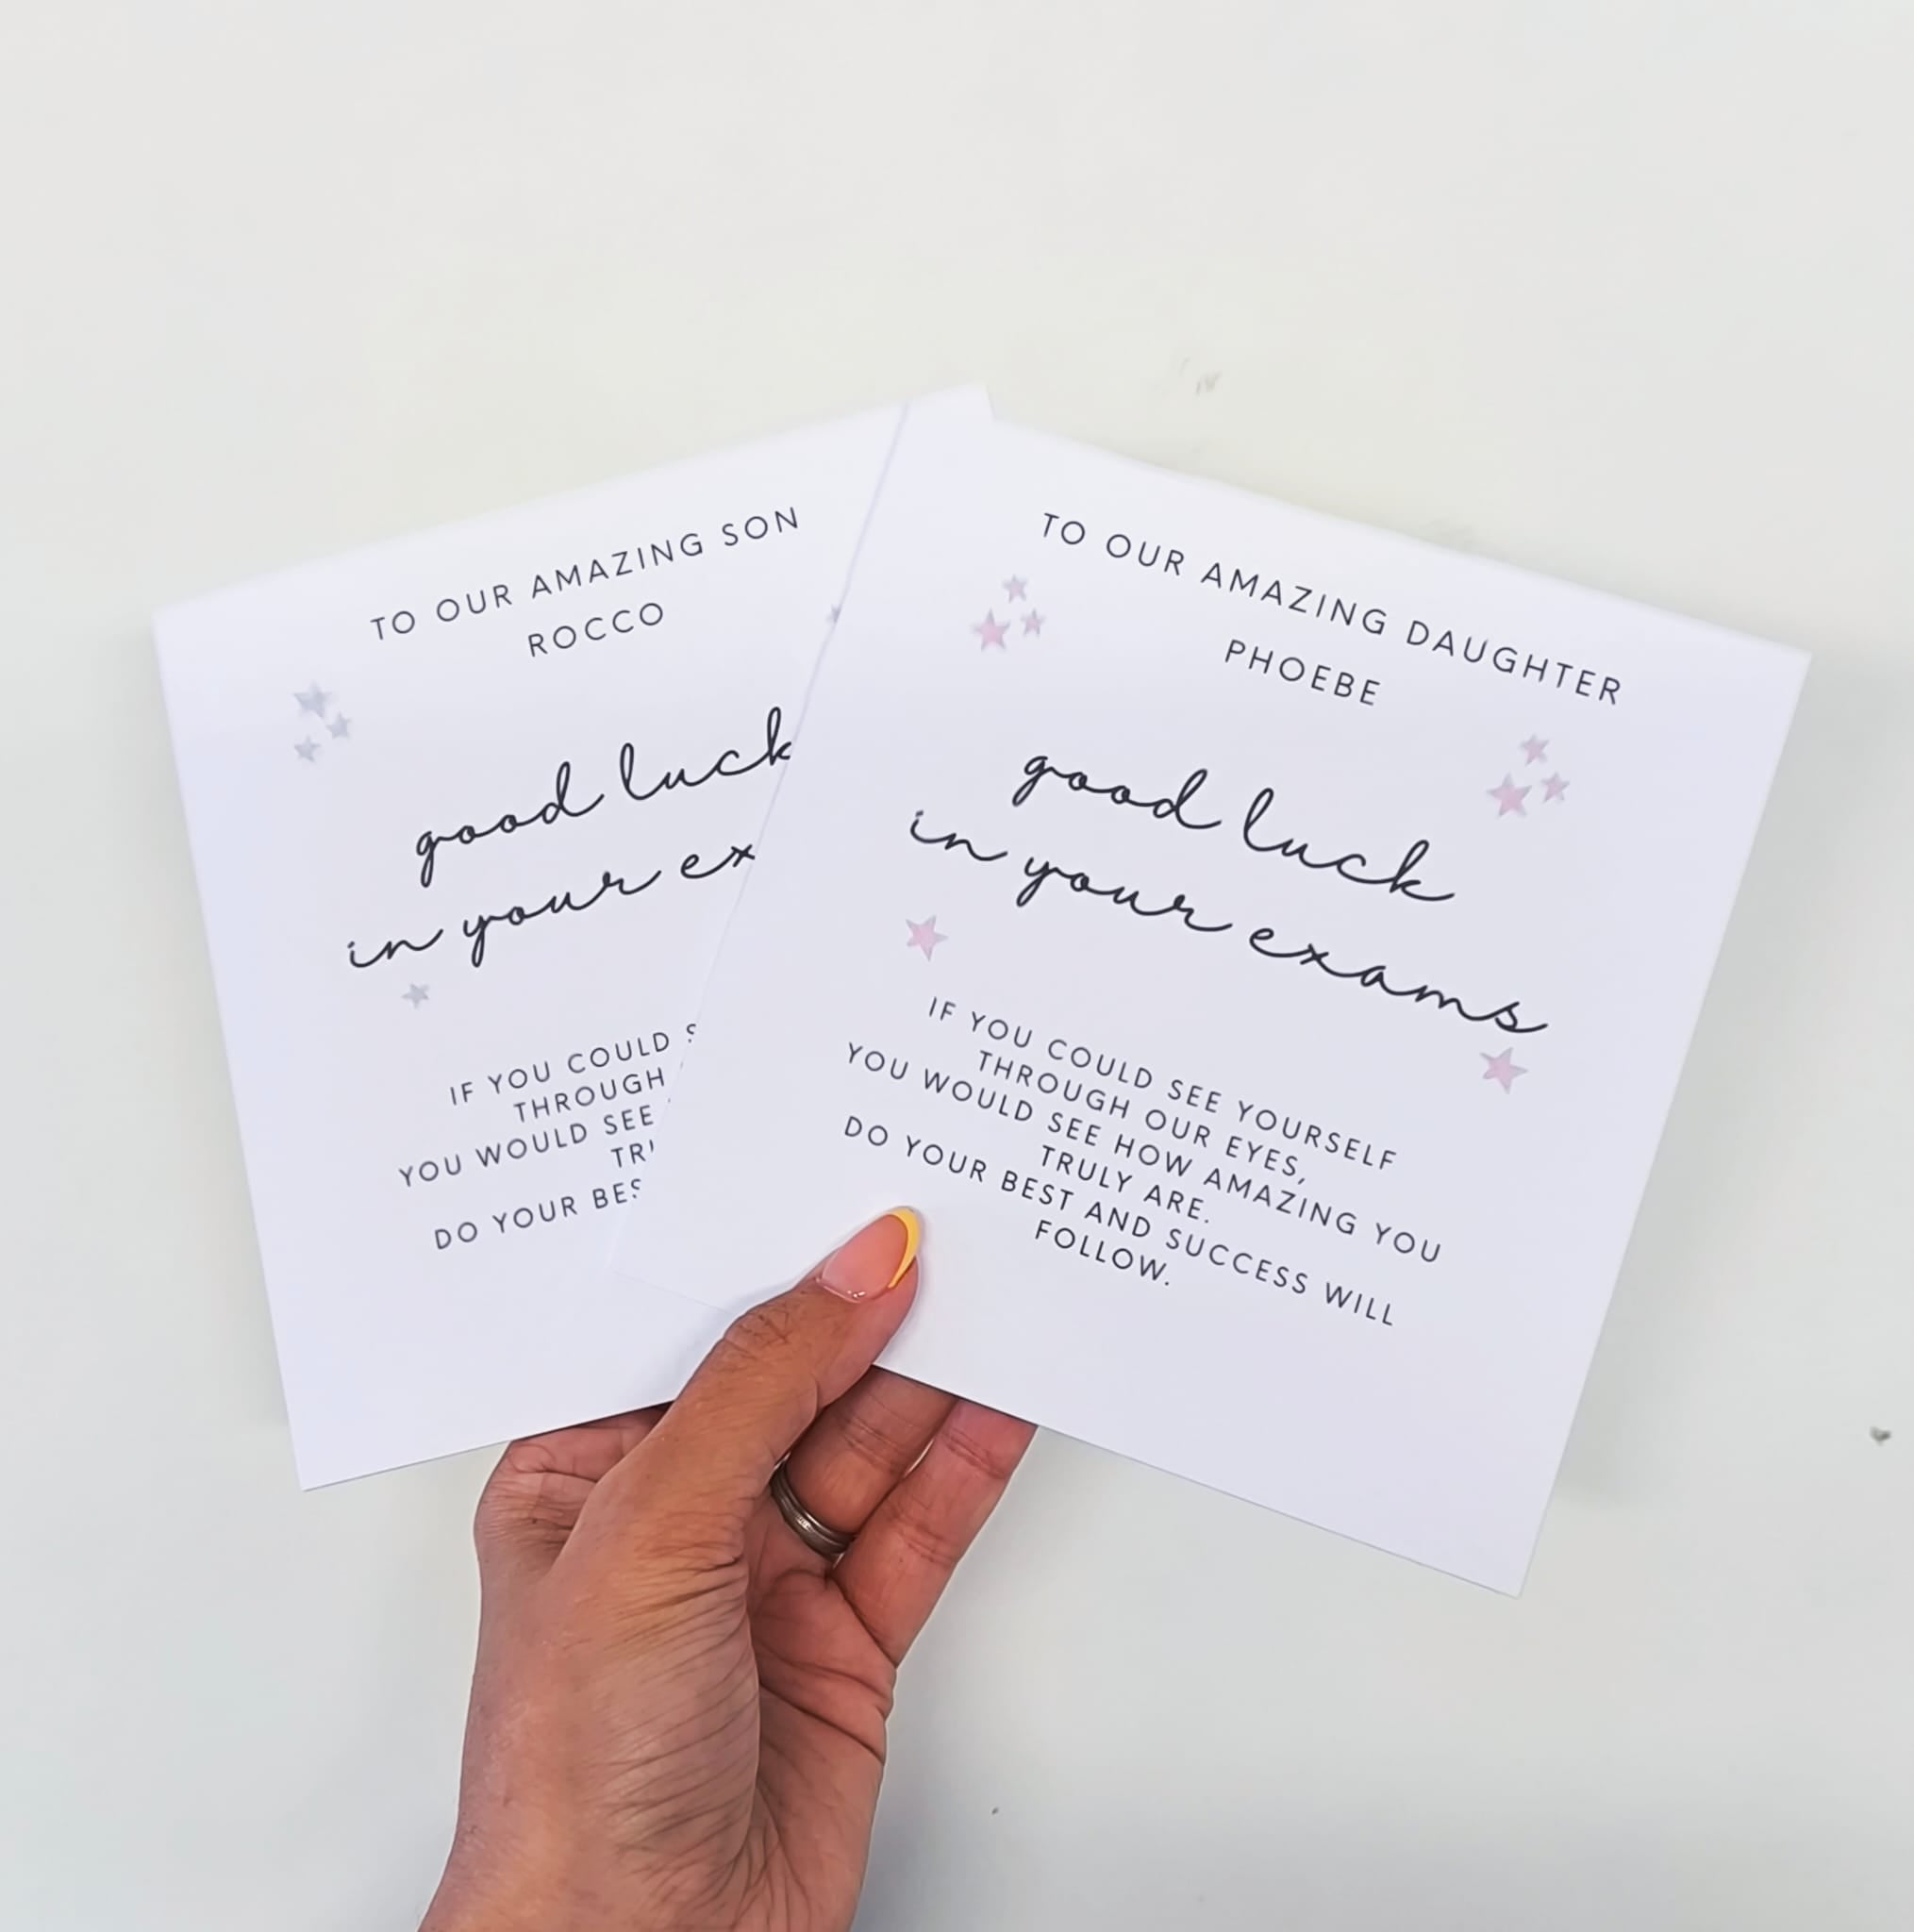 TO OUR AMAZING SON
ROCCO
good luck
in your ex
IF YOU COULD
THROUGH
YOU WOULD SEE
DO YOUR
TO OUR AMAZING DAUGHTER
PHOEBE
good luck
in your exams
IF YOU COULD SEE YOURSELF
THROUGH OUR EYES,
YOU WOULD SEE HOW AMAZING YOU
TRULY ARE.
DO YOUR BEST AND SUCCESS WILL
FOLLOW.